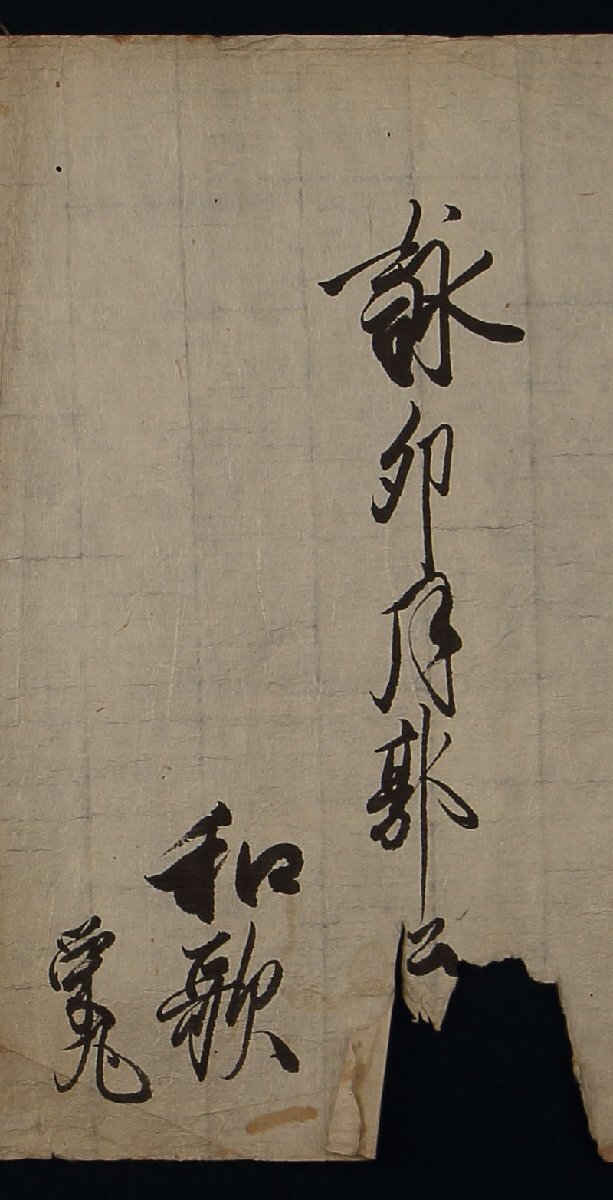 詠卯月郭公
和歌